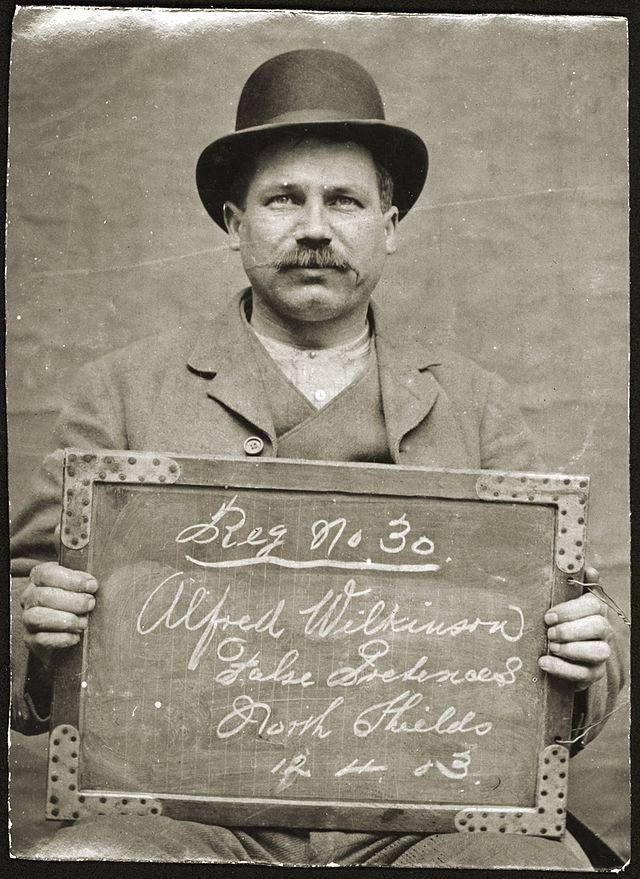 Reg No. 30
Alfred Wilkinson
False Pretences
North Shields
4 03